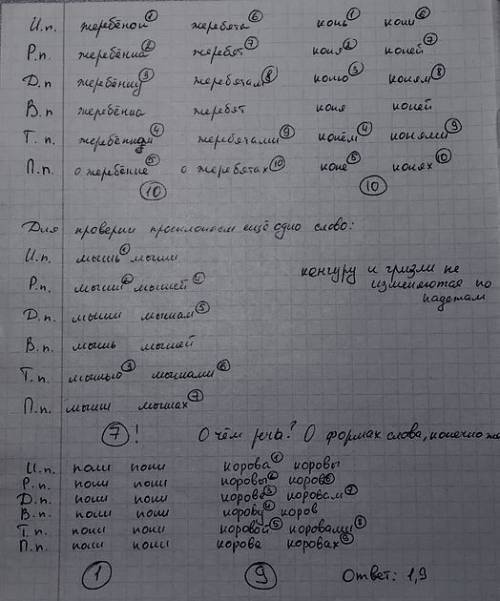 И.п. жеребёнок① жеребята⑥ конь① кони⑥
Р.п. жеребёнка② жеребят⑦ коня② коней⑦
Д.п. жеребёнку③ жеребятам⑧ коню③ коням⑧
В.п. жеребёнка жеребят коня коней
Т.п. жеребёнком④ жеребятами⑨ конём④ конями⑨
П.п. о жеребёнке⑤ о жеребятах⑩ коне⑤ конях⑩
⑩ ⑩
Для проверки просклоняем ещё одно слово:
И.п. мышь① мыши
Р.п. мыши② мышей④
Д.п. мыши мышам⑤
В.п. мышь мышей
Т.п. мышью③ мышами⑥
П.п. мыши мышах⑦
кенгуру и гризли не
изменяются по
падежам
⑦! О чём речь? О формах слова, конечно же
И.п. пони пони корова① коровы
Р.п. пони пони коровы② коров⑥
Д.п. пони пони корове③ коровам⑦
В.п. пони пони корову④ коров
Т.п. пони пони коровой⑤ коровами⑧
П.п. пони пони корове коровах⑨
① ⑨ Ответ: 1,9